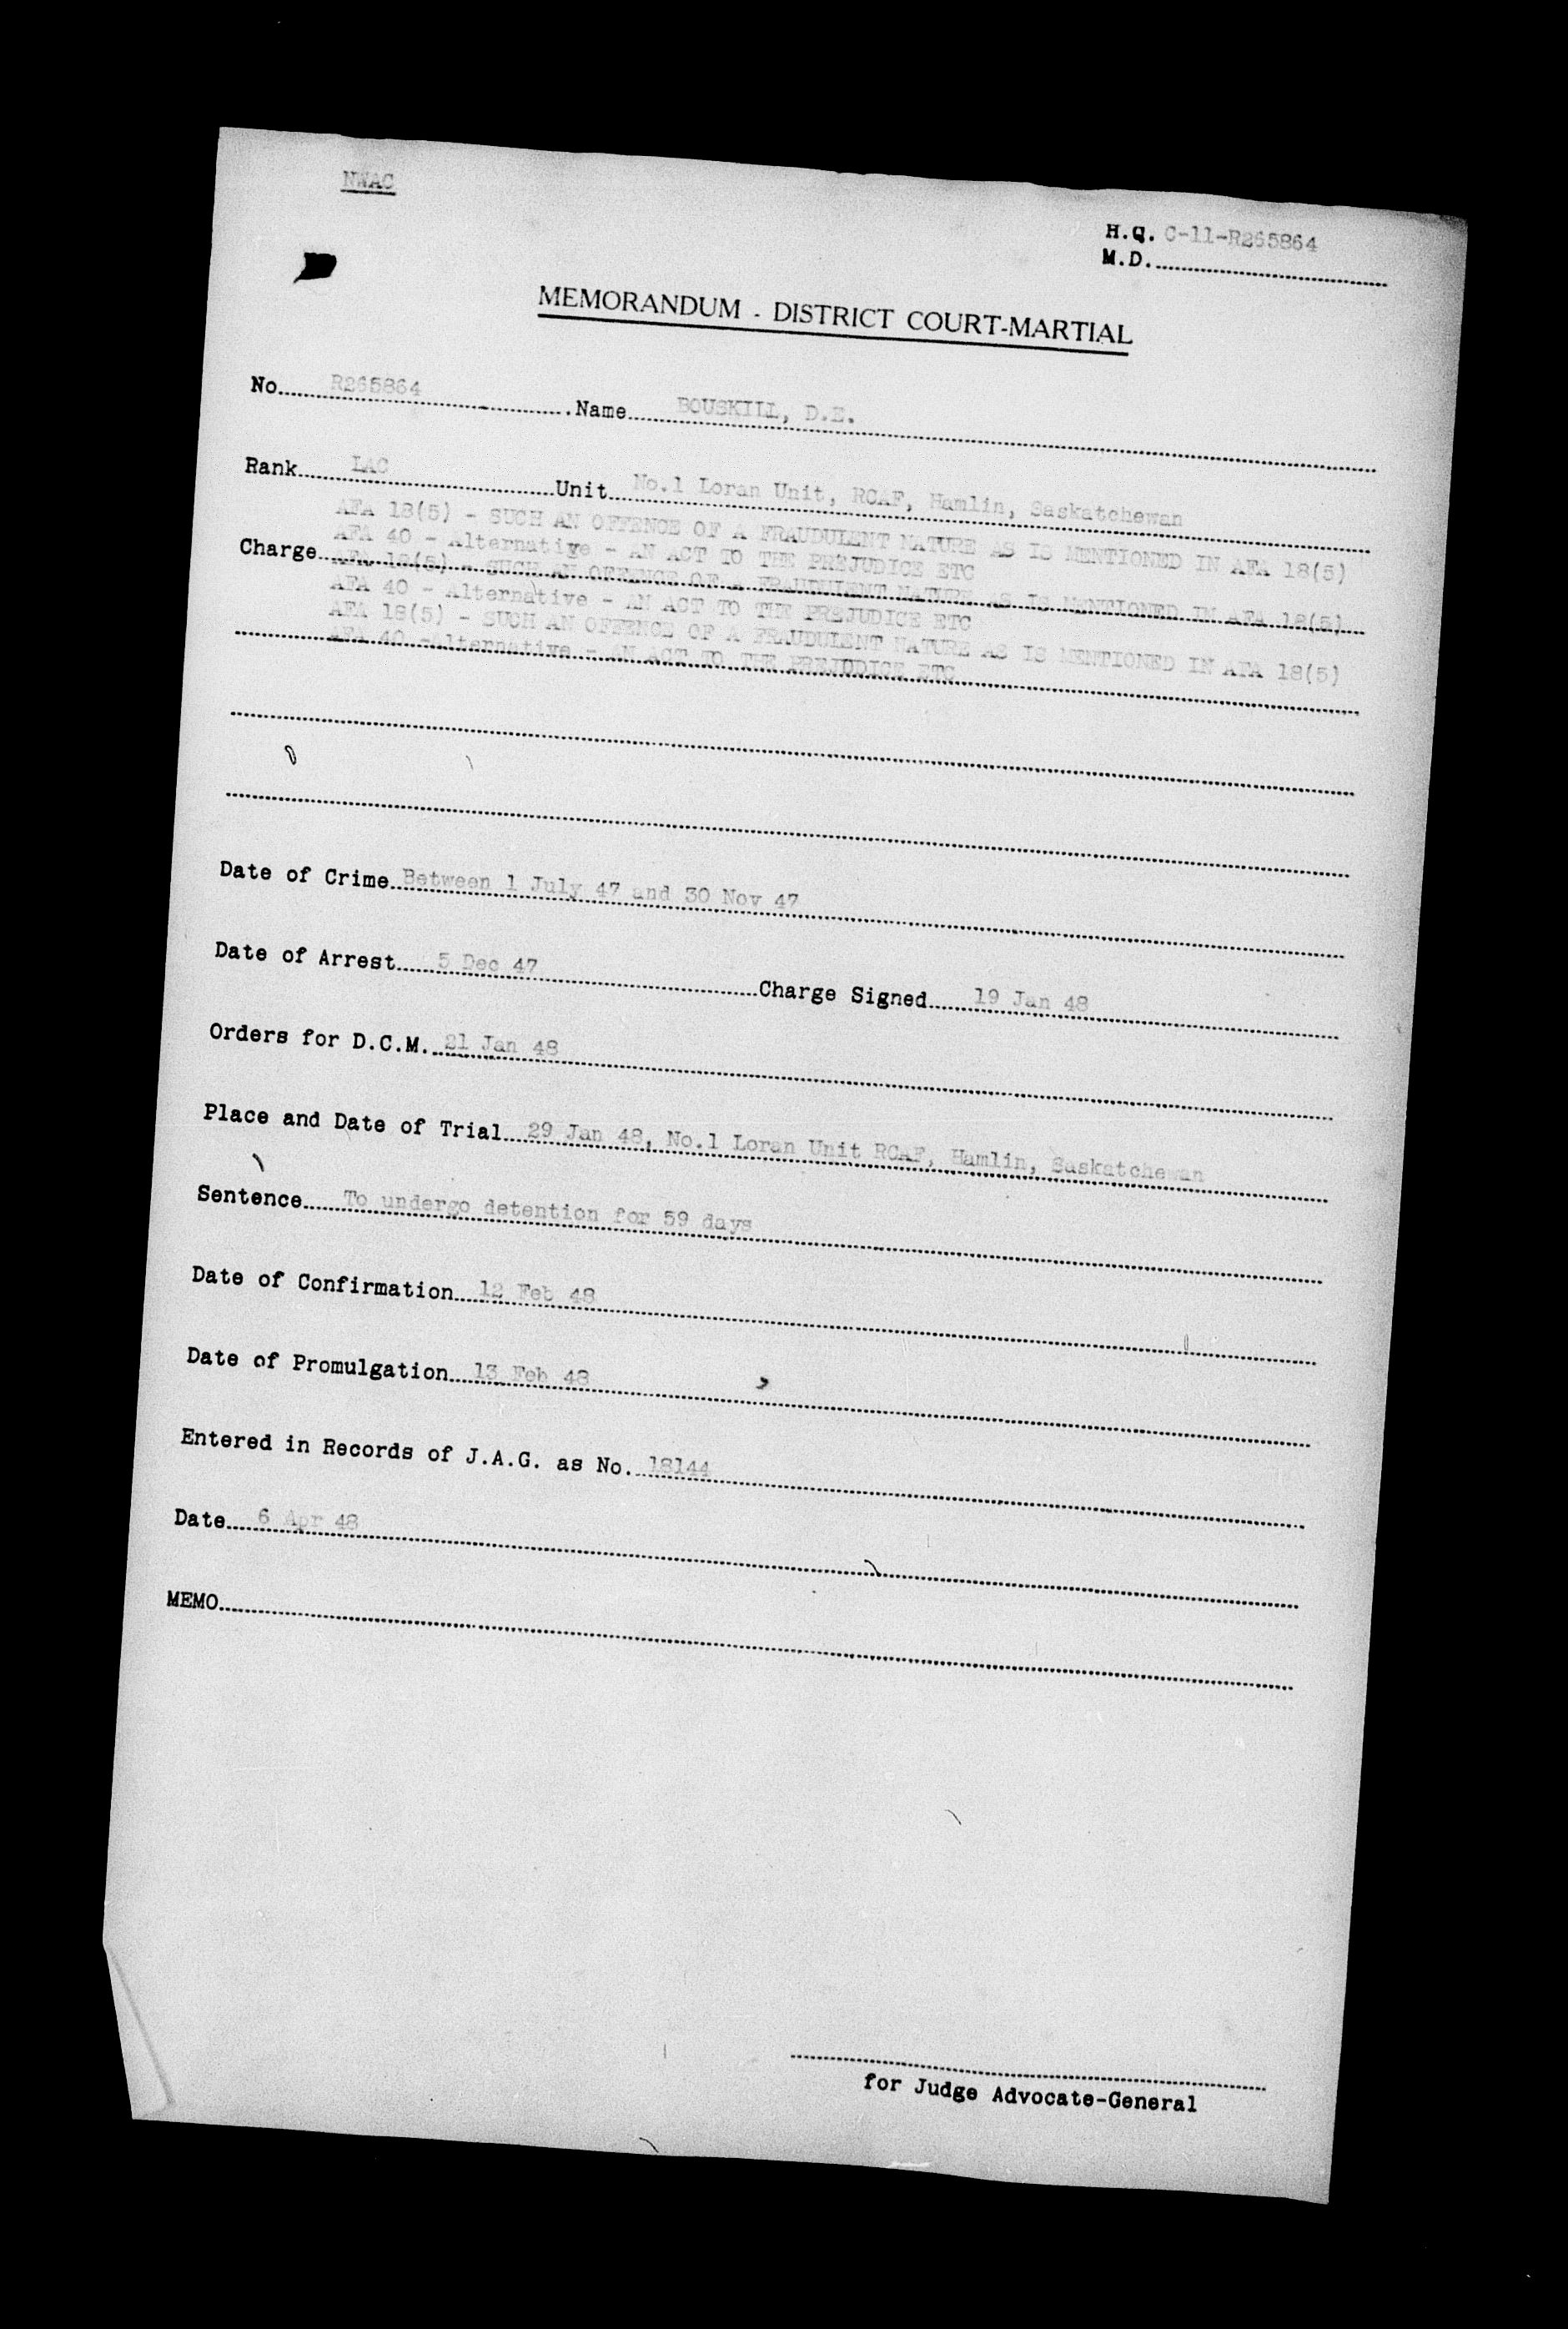 NWAC
H.Q. C-11-R265864
M.D.
MEMORANDUM - DISTRICT COURT-MARTIAL
No. R265864 Name BOUSKILL, D.E.
Rank LAC Unit No.1 Loran Unit, RCAF, Hamlin, Saskatchewan
AFA 18(5) - SUCH AN OFFENCE OF A FRAUDULENT NATURE AS IS MENTIONED IN AFA 18(5)
AFA 40 - Alternative - AN ACT TO THE PREJUDICE ETC
Charge AFA 18(5) - SUCH AN OFFENCE OF A FRAUDULENT NATURE AS IS MENTIONED IN AFA 18(5)
AFA 40 - Alternative - AN ACT TO THE PREJUDICE ETC
AFA 18(5) - SUCH AN OFFENCE OF A FRAUDULENT NATURE AS IS MENTIONED IN AFA 18(5)
AFA 40 -Alternative - AN ACT TO THE PREJUDICE ETC
Date of Crime Between 1 July 47 and 30 Nov 47
Date of Arrest 5 Dec 47 Charge Signed 19 Jan 48
Orders for D.C.M. 21 Jan 48
Place and Date of Trial 29 Jan 48, No.1 Loran Unit RCAF, Hamlin, Saskatchewan
Sentence To undergo detention for 59 days
Date of Confirmation 12 Feb 48
Date of Promulgation 13 Feb 48
Entered in Records of J.A.G. as No. 18144
Date 6 Apr 48
MEMO
for Judge Advocate-General